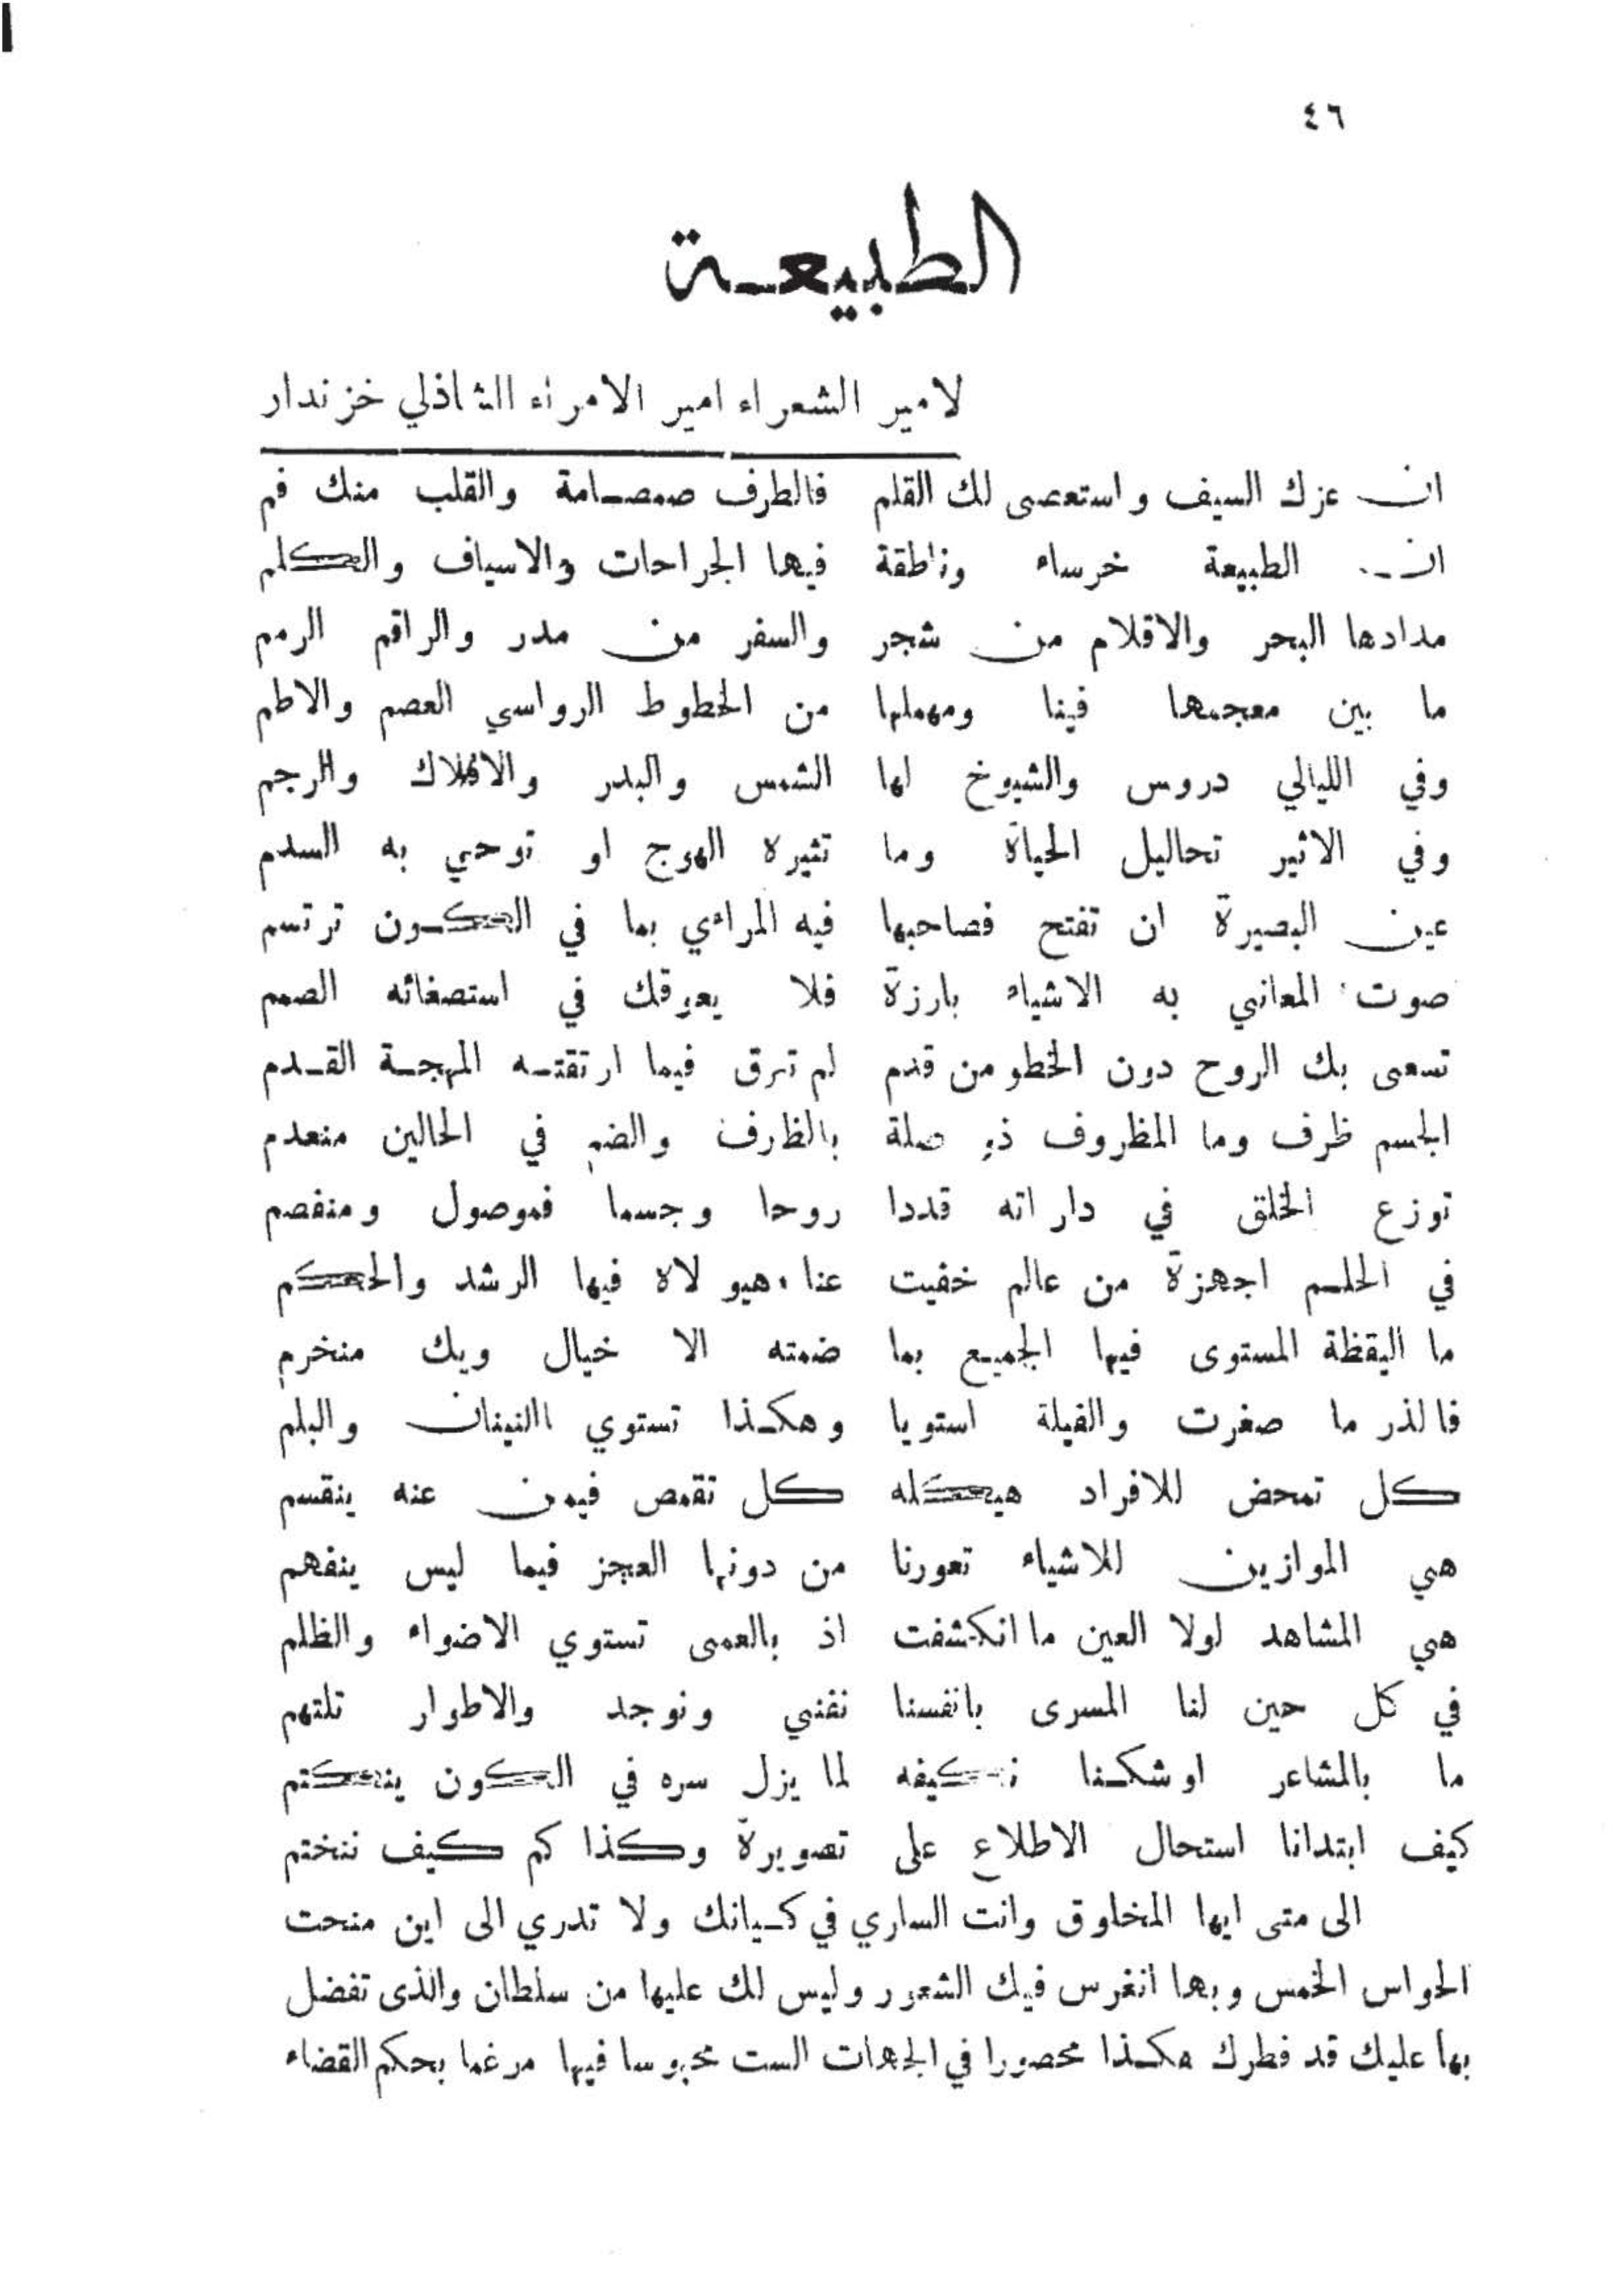 ٤٦
الطبيعـة
لامير الشعراء امير الامراء الشاذلي خزندار
ان عزك السيف واستعصى لك القلم فالطرف صمصـامة والقلب منك فم
ان الطبيعة خرساء وناطقة فيها الجراحات والاسياف والكلم
مدادها البحر والاقلام من شجر والسفر من مدر والراقم الرمم
ما بين معجمها فينا ومهملها من الخطوط الرواسي العصم والاطم
وفي الليالي دروس والشيوخ لها الشمس والبدر والافلاك والرجم
وفي الاثير تحاليل الحياة وما تثيره الهوج او توحي به السدم
عين البصيرة ان تفتح فصاحبها فيه المراءي بما في الكـون ترتسم
صوت المعاني به الاشياء بارزة فلا يعوقك في استصغائه الصمم
تسعى بك الروح دون الخطو من قدم لم ترق فيما ارتقتـه المهجـة القـدم
الجسم ظرف وما المظروف ذو صلة بالظرف والضم في الحالين منعدم
توزع الخلق في داراته قددا روحا وجسما فموصول ومنفصم
في الحلـم اجهزة من عالم خفيت عنا، هيولاه فيها الرشد والحكم
ما اليقظة المستوى فيها الجميع بما ضمته الا خيال ويك منخرم
فالذر ما صغرت والفيلة استويا وهكـذا تستوي االنينان والبلم
كل تمحض للافراد هيكله كل تقمص فيمن عنه ينقسم
هي الموازين للاشياء تعورنا من دونها العجز فيما ليس ينفهم
هي المشاهد لولا العين ما انكشفت اذ بالعمى تستوي الاضواء والظلم
في كل حين لنا المسرى بانفسنا نفنى ونوجد والاطوار تلتهم
ما بالمشاعر اوشكـنا نكيفه لما يزل سره في الكون ينكتم
كيف ابتدانا استحال الاطلاع على تصويرة وكذا كم كيف ننختم
الى متى ايها المخلوق وانت الساري في كـيانك ولا تدري الى اين منحت
الحواس الخمس وبها انغرس فيك الشعور وليس لك عليها من سلطان والذى تفضل
بها عليك قد فطرك هكـذا محصورا في الجهات الست محبوسا فيها مرغما بحكم القضاء